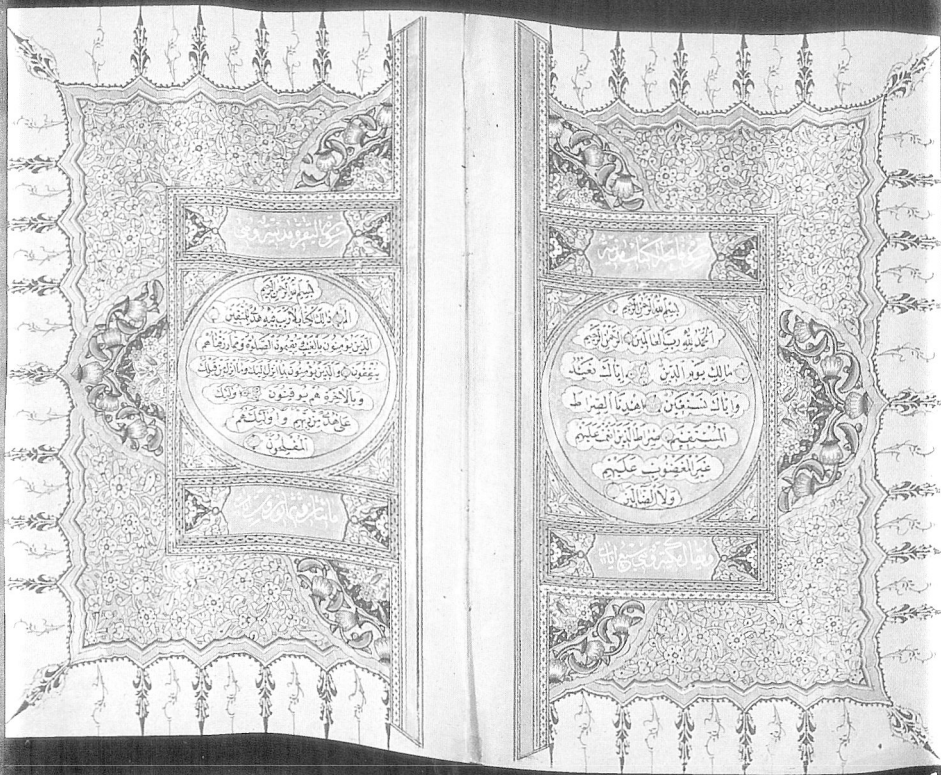 سورة فاتحة الكتاب مدنية
بسم الله الرحمن الرحيم
الحمد لله رب العالمين الرحمن الرحيم
مالك يوم الدين إياك نعبد
وإياك نستعين إهدنا الصراط
المستقيم صراط الذين أنعمت عليهم
غير المغضوب عليهم
ولا الضالين
سورة البقرة مدنية وهي
بسم الله الرحمن الرحيم
الم ذلك الكتاب لا ريب فيه هدى للمتقين
الذين يؤمنون بالغيب ويقيمون الصلوة ومما رزقناهم
ينفقون والذين يؤمنون بما أنزل إليك وما أنزل من قبلك
وبالآخرة هم يوقنون أولئك
على هدى من ربهم وأولئك هم
المفلحون